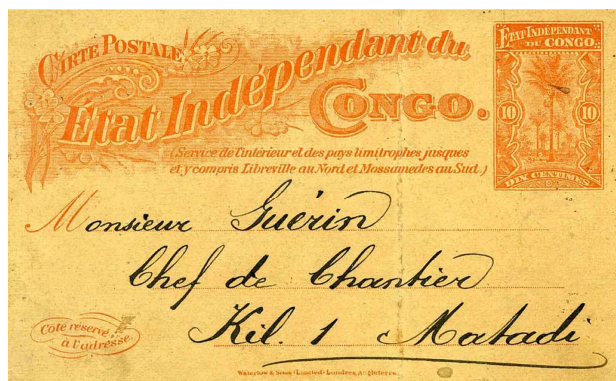 CARTE POSTALE
État Indépendant du
CONGO.
(Service de l'intérieur et des pays limitrophes jusques
et y compris Libreville au Nord et Mossamedes au Sud.)
ETAT INDEPENDANT
DU CONGO
10 10
DIX CENTIMES
Monsieur Guérin
Chef de Chantier
Kil. 1 Matadi
Côté réservé
à l'adresse.
Waterlow & Sons Limited, Londres, Angleterre.